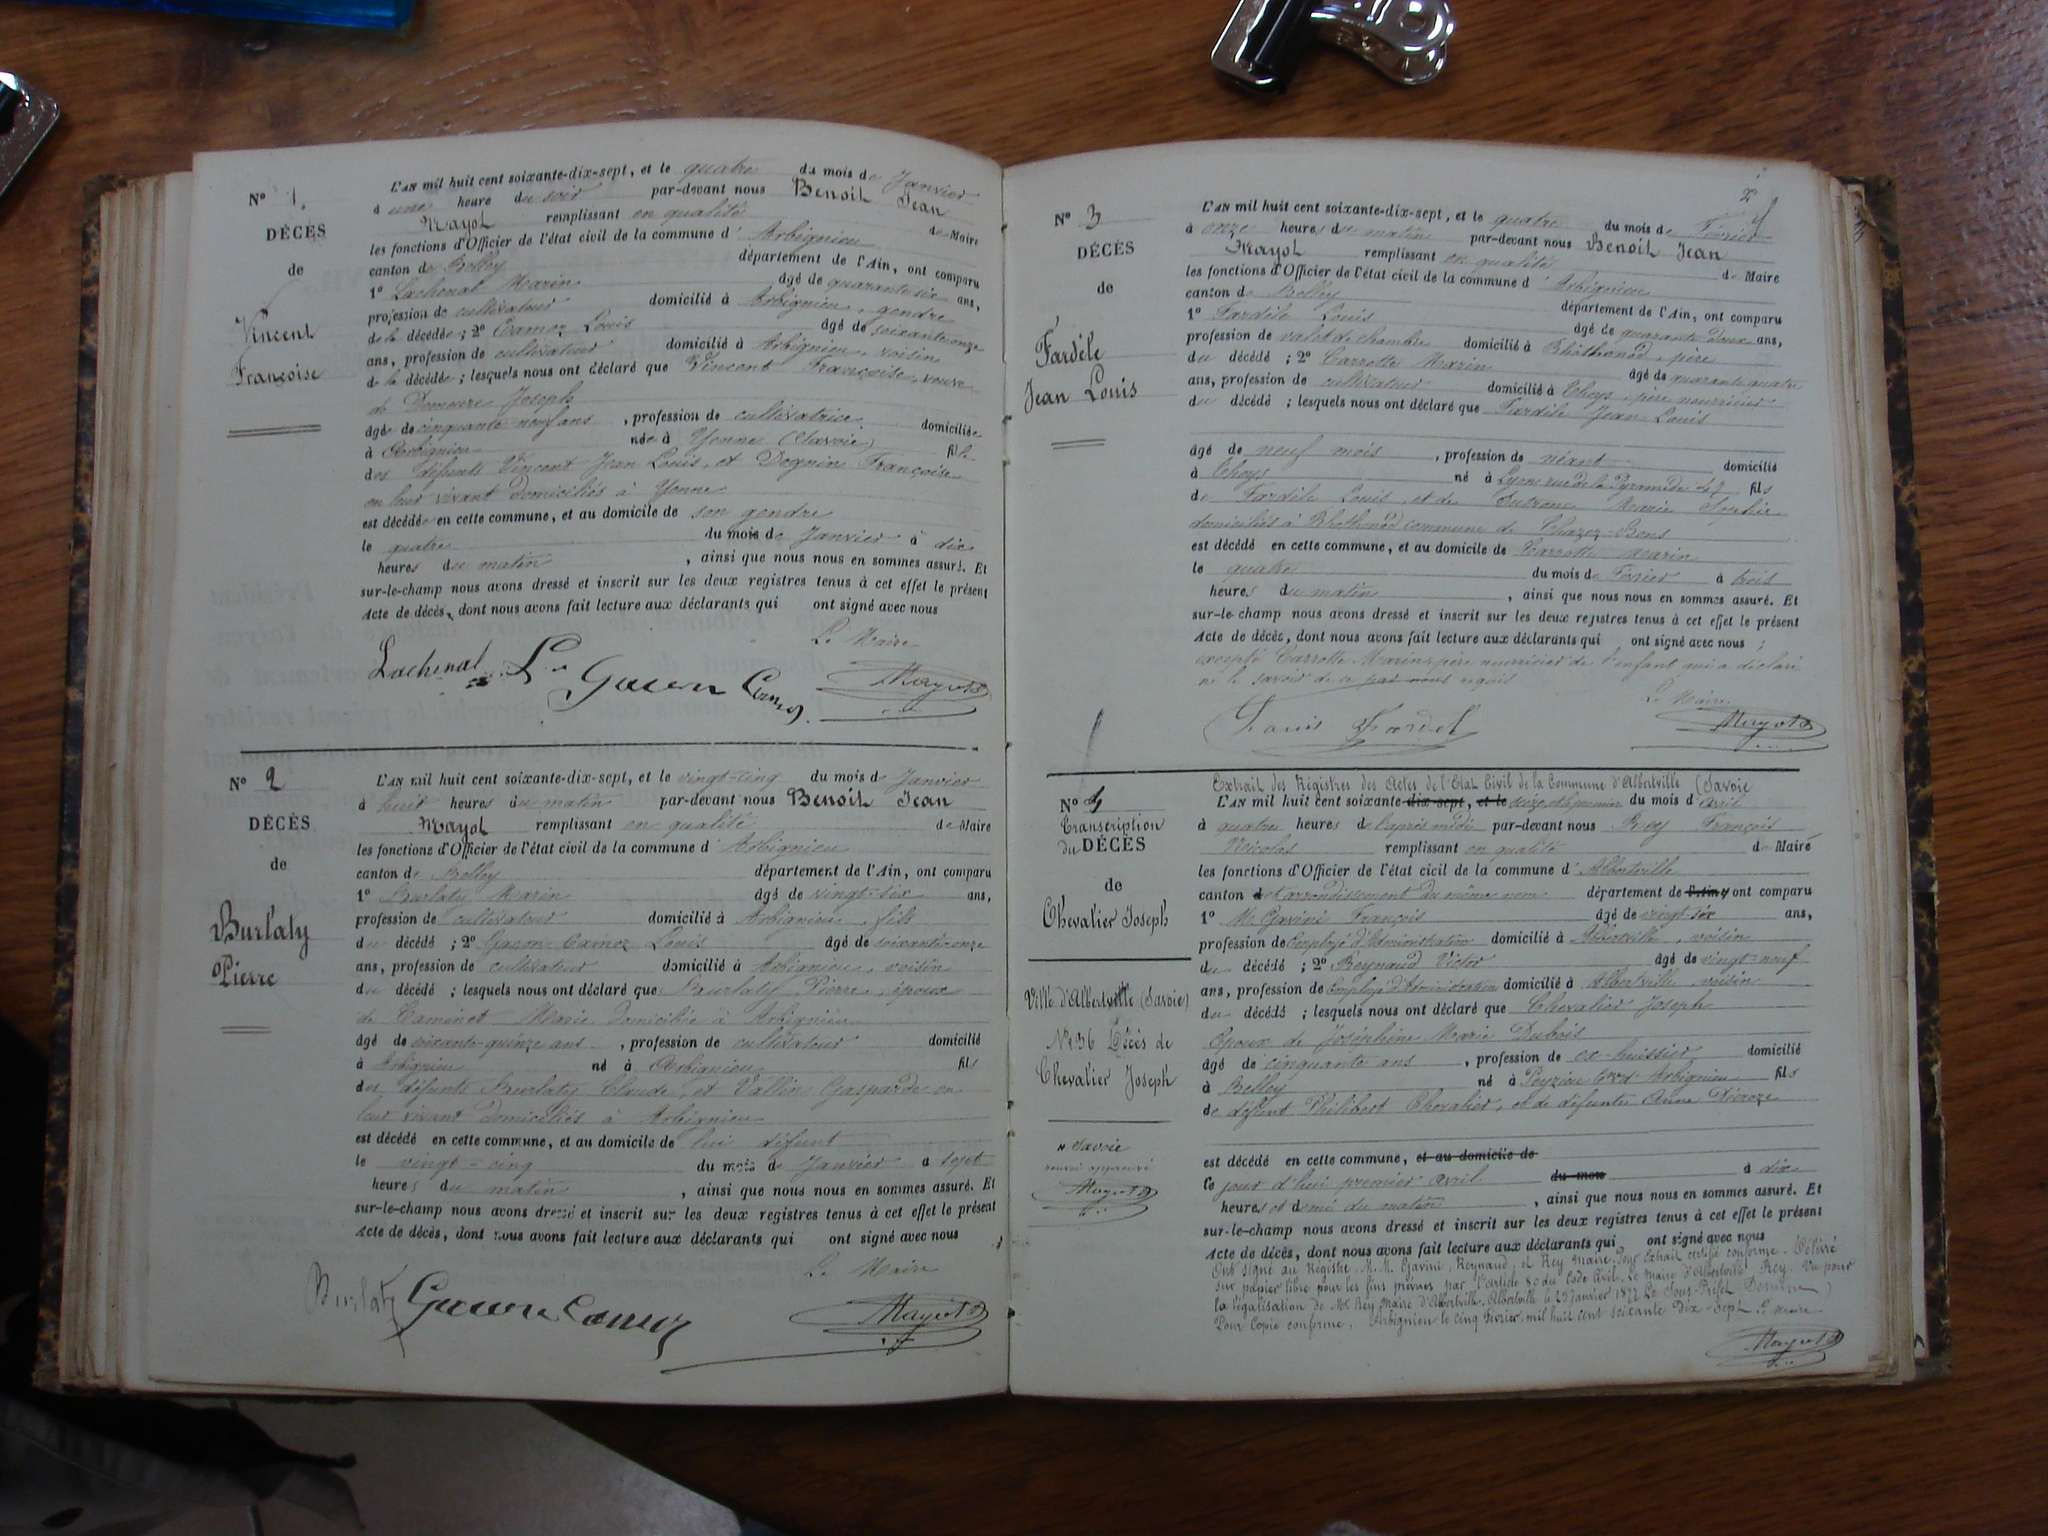 N° 1.
DÉCÈS
de
Vincent
Françoise
L'AN mil huit cent soixante-dix-sept, et le quatre du mois de Janvier
à une heure du soir par-devant nous Benoit Jean
Mayot remplissant en qualité de Maire
les fonctions d'Officier de l'état civil de la commune d'Arbignieu
canton de Belley département de l'Ain, ont comparu
1° Lachenal Marin âgé de quarante six ans,
profession de cultivateur domicilié à Arbignieu, gendre
de la décédée ; 2° Louis âgé de soixante onze
ans, profession de cultivateur domicilié à Arbignieu, voisin
de la décédée ; lesquels nous ont déclaré que Vincent Françoise, veuve
de Joseph
âgée de cinquante neuf ans, profession de cultivatrice domiciliée
à Arbignieu née à Yenne (Savoie) fille
des défunts Vincent Jean Louis, et Françoise
en leur vivant domiciliés à Yenne
est décédée en cette commune, et au domicile de son gendre
le quatre du mois de Janvier à dix
heures du matin, ainsi que nous nous en sommes assuré. Et
sur-le-champ nous avons dressé et inscrit sur les deux registres tenus à cet effet le présent
Acte de décès, dont nous avons fait lecture aux déclarants qui ont signé avec nous
Le Maire
Lachenal Mayot
N° 2
DÉCÈS
de
Burlaty
Pierre
L'AN mil huit cent soixante-dix-sept, et le vingt-cinq du mois de Janvier
à huit heures du matin par-devant nous Benoit Jean
Mayot remplissant en qualité de Maire
les fonctions d'Officier de l'état civil de la commune d'Arbignieu
canton de Belley département de l'Ain, ont comparu
1° Burlaty Marin âgé de vingt-six ans,
profession de cultivateur domicilié à Arbignieu, fils
du décédé ; 2° Louis âgé de soixante onze
ans, profession de cultivateur domicilié à Arbignieu, voisin
du décédé ; lesquels nous ont déclaré que Burlaty Pierre, époux
de Marie domiciliée à Arbignieu
âgé de soixante-quinze ans, profession de cultivateur domicilié
à Arbignieu né à Arbignieu fils
des défunts Burlaty Claude, et Vallin Gasparde en
leur vivant domiciliés à Arbignieu
est décédé en cette commune, et au domicile de lui défunt
le vingt-cinq du mois de Janvier à sept
heures du matin, ainsi que nous nous en sommes assuré. Et
sur-le-champ nous avons dressé et inscrit sur les deux registres tenus à cet effet le présent
Acte de décès, dont nous avons fait lecture aux déclarants qui ont signé avec nous
Le Maire
Burlaty Mayot
2
N° 3
DÉCÈS
de
Fardèle
Jean Louis
L'AN mil huit cent soixante-dix-sept, et le quatre du mois de Février
à onze heures du matin par-devant nous Benoit Jean
Mayot remplissant en qualité de Maire
les fonctions d'Officier de l'état civil de la commune d'Arbignieu
canton de Belley département de l'Ain, ont comparu
1° Fardèle Louis âgé de quarante deux ans,
profession de valet de chambre domicilié à Rhothonod, père
du décédé ; 2° Carrotte Marin âgé de quarante quatre
ans, profession de cultivateur domicilié à Thoys, père nourricier
du décédé ; lesquels nous ont déclaré que Fardèle Jean Louis
âgé de neuf mois, profession de néant domicilié
à Thoys né à Lyon rue de la Pyramide fils
de Fardèle Louis, et de Marie Sophie
domiciliés à Rhothonod commune de Chazey-Bons
est décédé en cette commune, et au domicile de Carrotte Marin
le quatre du mois de Février à trois
heures du matin, ainsi que nous nous en sommes assuré. Et
sur-le-champ nous avons dressé et inscrit sur les deux registres tenus à cet effet le présent
Acte de décès, dont nous avons fait lecture aux déclarants qui ont signé avec nous ;
excepté Carrotte Marin père nourricier de l'enfant qui a déclaré
ne le savoir de ce requis
Le Maire
Louis Fardel Mayot
N° 4
Transcription
du DÉCÈS
de
Chevalier Joseph
Ville d'Albertville (Savoie)
N° 36 Décès de
Chevalier Joseph
" Savoie
Mayot
Extrait des Régistres des Actes de l'Etat Civil de la Commune d'Albertville (Savoie
L'AN mil huit cent soixante dix-sept, et le seize du mois d'Avril
à quatre heures de l'après midi par-devant nous Rey François
Nicolas remplissant en qualité de Maire
les fonctions d'Officier de l'état civil de la commune d'Albertville
canton et arrondissement du même nom département de l'Ain, ont comparu
1° M. Gavini François âgé de vingt-six ans,
profession de Employé d'Administration domicilié à Albertville, voisin
du décédé ; 2° Reynaud Victor âgé de vingt-neuf
ans, profession de Employé d'Administration domicilié à Albertville, voisin
du décédé ; lesquels nous ont déclaré que Chevalier Joseph
Epoux de Joséphine Marie Dubois
âgé de cinquante ans, profession de ex-huissier domicilié
à Belley né à Peyzieu Arbignieu fils
de défunt Philibert Chevalier, et de défunte Anne
est décédé en cette commune, et au domicile de
le jour d'hui premier avril du mois à dix
heures et demie du matin, ainsi que nous nous en sommes assuré. Et
sur-le-champ nous avons dressé et inscrit sur les deux registres tenus à cet effet le présent
Acte de décès, dont nous avons fait lecture aux déclarants qui ont signé avec nous
Ont signé au Régistre M. M. Gavini, Reynaud, et Rey Maire. Pour Extrait certifié conforme. Délivré
sur papier libre pour les fins prévues par l'article 80 du Code Civil. Le Maire d'Albertville Rey. Vu pour
la légalisation de M. Rey Maire d'Albertville. Albertville le 23 Janvier 1877. Le Sous-Préfet
Pour Copie conforme. Arbignieu le cinq Février mil huit cent soixante Dix-Sept. Le Maire
Mayot